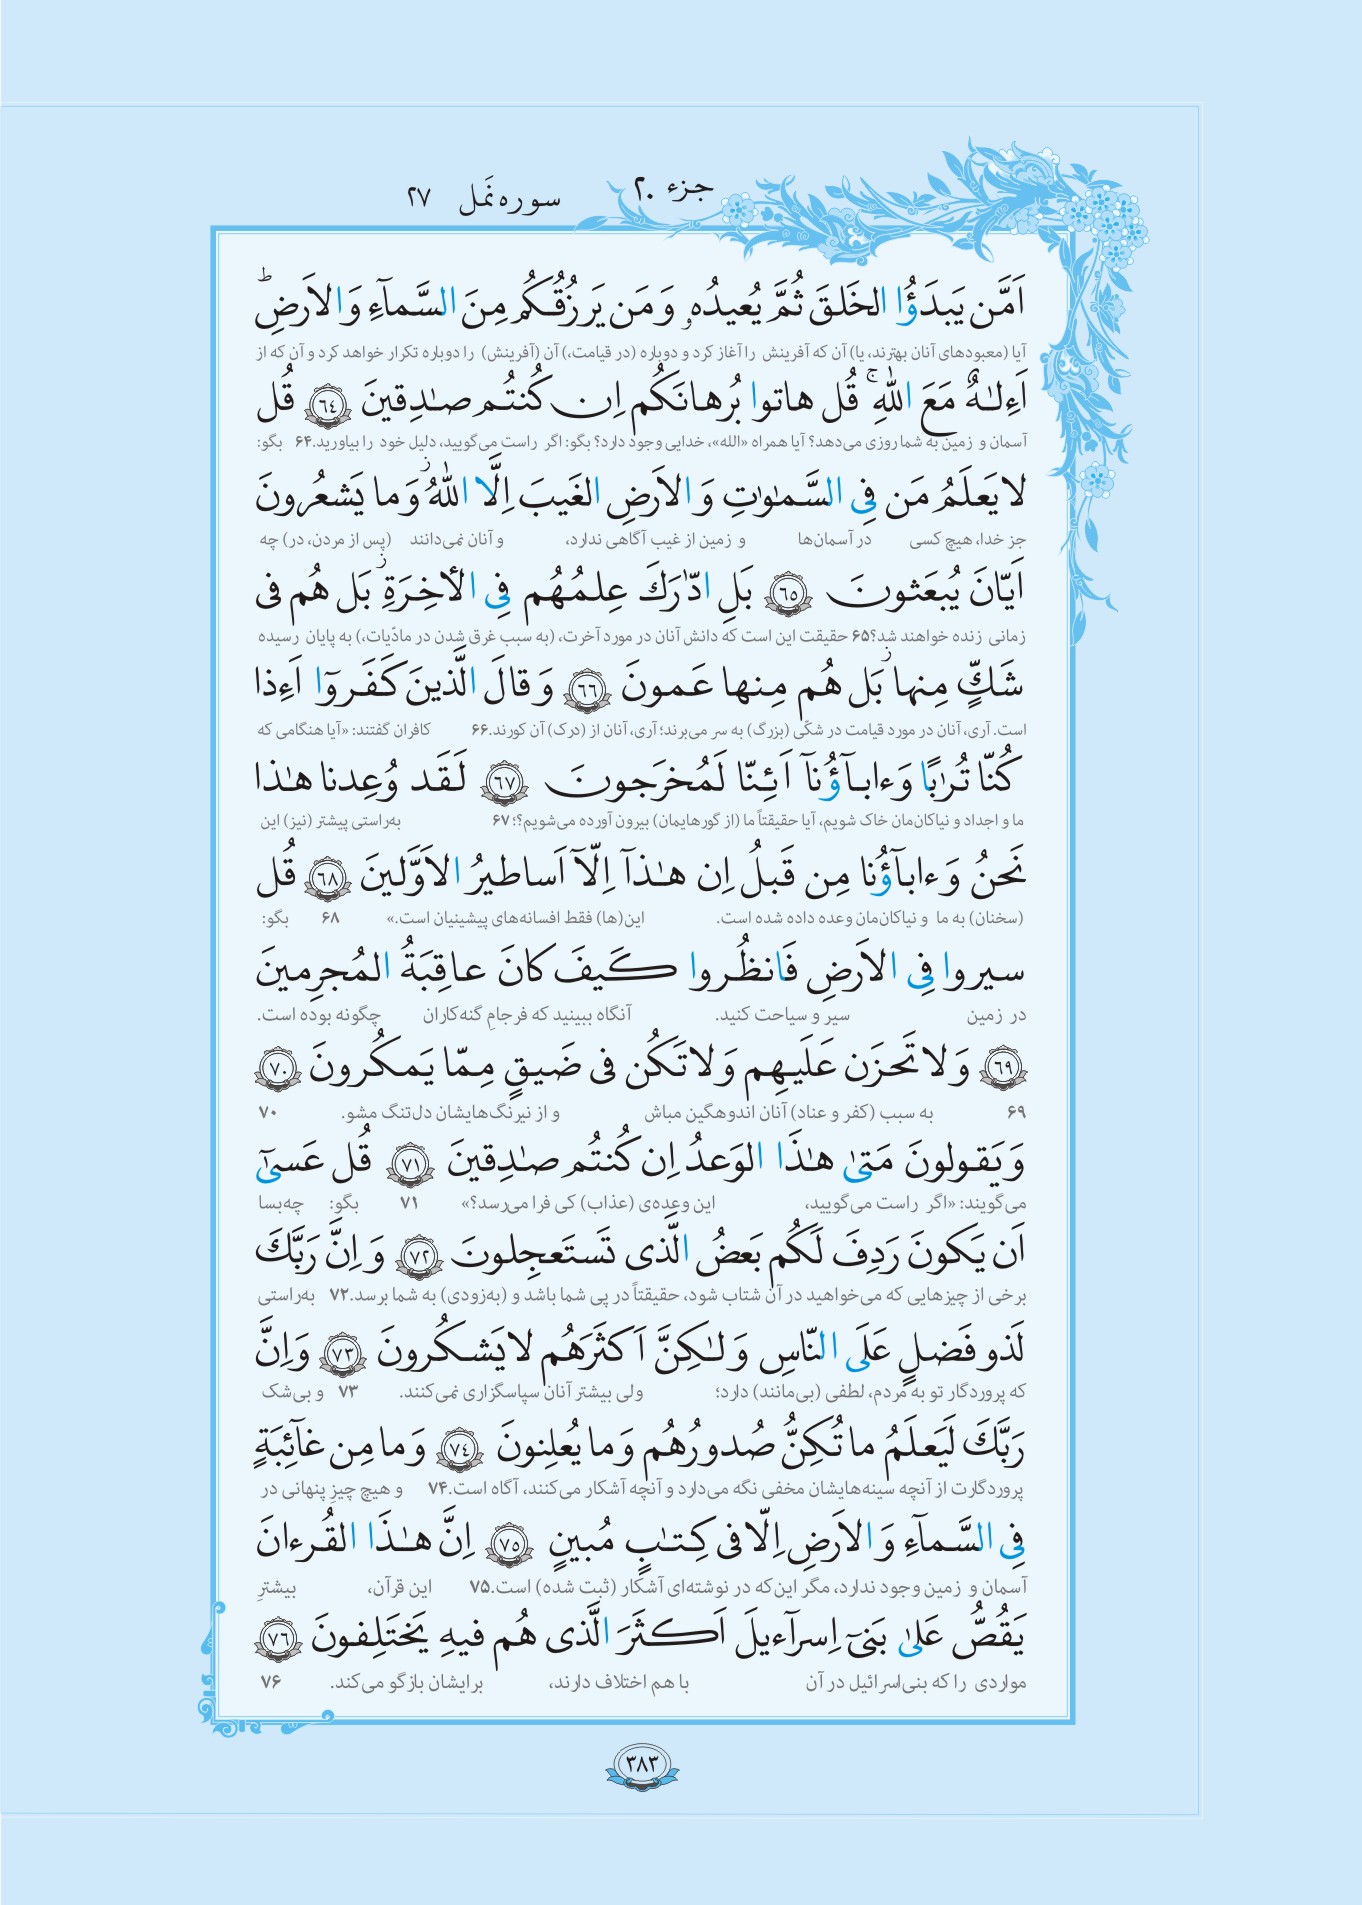 جزء ۲۰
سوره نَمل ۲۷
اَمَّن يَبدَؤُا الخَلقَ ثُمَّ يُعيدُهٖ وَمَن يَرزُقُكُم مِنَ السَّماءِ وَالاَرضِ ؕ
آیا (معبودهای آنان بهترند، یا) آن که آفرینش را آغاز کرد و دوباره (در قیامت،) آن (آفرینش) را دوباره تکرار خواهد کرد و آن که از
اَءِلـٰهٌ مَعَ اللهِ ۚ قُل هاتوا بُرهانَكُم اِن كُنتُم صـٰدِقينَ ﴿٦٤﴾ قُل
آسمان و زمین به شما روزی می‌دهد؟ آیا همراه «الله»، خدایی وجود دارد؟ بگو: اگر راست می‌گویید، دلیل خود را بیاورید.۶۴ بگو:
لا يَعلَمُ مَن فِى السَّمـٰوٰتِ وَالاَرضِ الغَيبَ اِلَّا اللهُ ز وَما يَشعُرونَ
جز خدا، هیچ کسی در آسمان‌ها و زمین از غیب آگاهی ندارد، و آنان نمی‌دانند (پس از مردن، در) چه
اَيّانَ يُبعَثونَ ﴿٦٥﴾ بَلِ ادّٰرَكَ عِلمُهُم فِى الأخِرَةِ ز بَل هُم فى
زمانی زنده خواهند شد؟۶۵ حقیقت این است که دانش آنان در مورد آخرت، (به سبب غرق شدن در مادّیات،) به پایان رسیده
شَكٍّ مِنها ز بَل هُم مِنها عَمونَ ﴿٦٦﴾ وَقالَ الَّذينَ كَفَروٓا اَءِذا
است. آری، آنان در مورد قیامت در شکّی (بزرگ) به سر می‌برند؛ آری، آنان از (درک) آن کورند.۶۶ کافران گفتند: «آیا هنگامی که
كُنّا تُرٰبًا وَءابآؤُنآ اَئِنّا لَمُخرَجونَ ﴿٦٧﴾ لَقَد وُعِدنا هـٰذا
ما و اجداد و نیاکان‌مان خاک شویم، آیا حقیقتاً ما (از گورهایمان) بیرون آورده می‌شویم؟؛۶۷ به‌راستی پیشتر (نیز) این
نَحنُ وَءابآؤُنا مِن قَبلُ اِن هـٰذآ اِلّآ اَساطيرُ الاَوَّلينَ ﴿٦٨﴾ قُل
(سخنان) به ما و نیاکان‌مان وعده داده شده است. این(ها) فقط افسانه‌های پیشینیان است.» ۶۸ بگو:
سيروا فِى الاَرضِ فَانظُروا كَيفَ كانَ عاقِبَةُ المُجرِمينَ
در زمین سیر و سیاحت کنید. آنگاه ببینید که فرجامِ گنه‌کاران چگونه بوده است.
﴿٦٩﴾ وَلا تَحزَن عَلَيهِم وَلا تَكُن فى ضَيقٍ مِمّا يَمكُرونَ ﴿٧٠﴾
۶۹ به سبب (کفر و عناد) آنان اندوهگین مباش و از نیرنگ‌هایشان دل‌تنگ مشو. ۷۰
وَيَقولونَ مَتىٰ هـٰذَا الوَعدُ اِن كُنتُم صـٰدِقينَ ﴿٧١﴾ قُل عَسىٰٓ
می‌گویند: «اگر راست می‌گویید، این وعده‌ی (عذاب) کی فرا می‌رسد؟» ۷۱ بگو: چه‌بسا
اَن يَكونَ رَدِفَ لَكُم بَعضُ الَّذى تَستَعجِلونَ ﴿٧٢﴾ وَاِنَّ رَبَّكَ
برخی از چیزهایی که می‌خواهید در آن شتاب شود، حقیقتاً در پی شما باشد و (به‌زودی) به شما برسد.۷۲ به‌راستی
لَذو فَضلٍ عَلَى النّاسِ وَلـٰكِنَّ اَكثَرَهُم لا يَشكُرونَ ﴿٧٣﴾ وَاِنَّ
که پروردگار تو به مردم، لطفی (بی‌مانند) دارد؛ ولی بیشتر آنان سپاسگزاری نمی‌کنند. ۷۳ و بی‌شک
رَبَّكَ لَيَعلَمُ ما تُكِنُّ صُدورُهُم وَما يُعلِنونَ ﴿٧٤﴾ وَما مِن غآئِبَةٍ
پروردگارت از آنچه سینه‌هایشان مخفی نگه می‌دارد و آنچه آشکار می‌کنند، آگاه است.۷۴ و هیچ چیزِ پنهانی در
فِى السَّمآءِ وَالاَرضِ اِلّا فى كِتـٰبٍ مُبينٍ ﴿٧٥﴾ اِنَّ هـٰذَا القُرءانَ
آسمان و زمین وجود ندارد، مگر این‌که در نوشته‌ای آشکار (ثبت شده) است.۷۵ این قرآن، بیشترِ
يَقُصُّ عَلىٰ بَنىٓ اِسرآءيلَ اَكثَرَ الَّذى هُم فيهِ يَختَلِفونَ ﴿٧٦﴾
مواردی را که بنی‌اسرائیل در آن با هم اختلاف دارند، برایشان بازگو می‌کند. ۷۶
۳۸۳